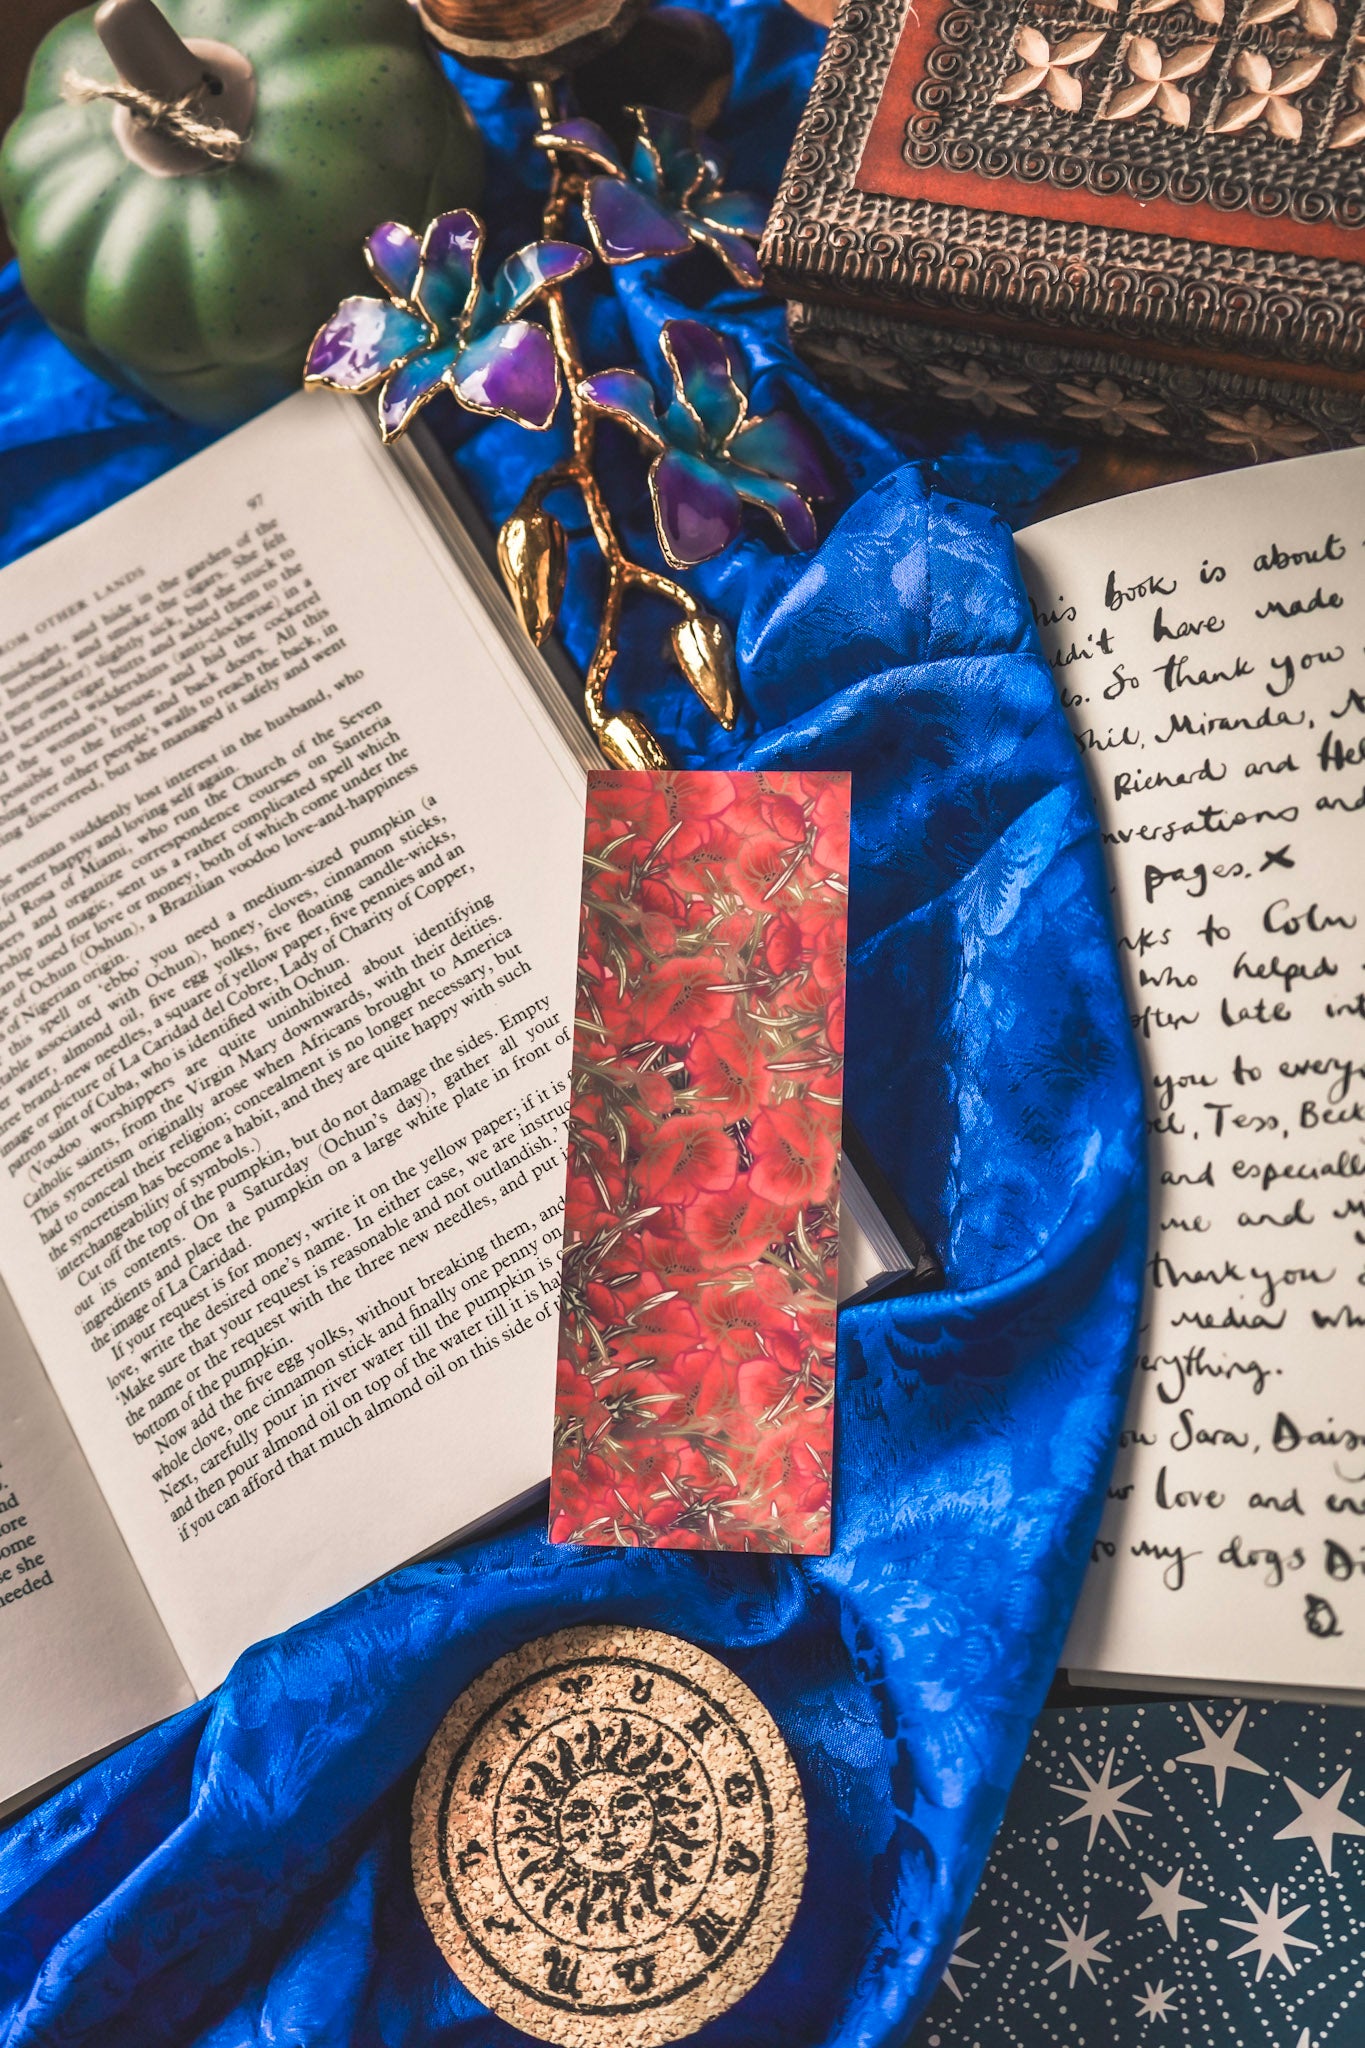 97
OM OTHER LANDS
and hide in the garden of the
husband, and smoke the cigars. She felt
non-smoker) slightly sick, but she stuck to
her own cigar butts and added them to the
scattered widdershins (anti-clockwise) in a
the woman's house, and hid the cockerel
possible to the front and back doors. All this
over other people's walls to reach the back, in
discovered, but she managed it safely and went
woman suddenly lost interest in the husband, who
former happy and loving self again.
Rosa of Miami, who run the Church of the Seven
and organize correspondence courses on Santeria
and magic, sent us a rather complicated spell which
be used for love or money, both of which come under the
of Ochun (Oshun), a Brazilian voodoo love-and-happiness
of Nigerian origin.
this spell or 'ebbo' you need a medium-sized pumpkin (a
associated with Ochun), honey, cloves, cinnamon sticks,
water, almond oil, five egg yolks, five floating candle-wicks,
brand-new needles, a square of yellow paper, five pennies and an
image or picture of La Caridad del Cobre, Lady of Charity of Copper,
patron saint of Cuba, who is identified with Ochun.
(Voodoo worshippers are quite uninhibited about identifying
Catholic saints, from the Virgin Mary downwards, with their deities.
This syncretism originally arose when Africans brought to America
had to conceal their religion; concealment is no longer necessary, but
the syncretism has become a habit, and they are quite happy with such
interchangeability of symbols.)
Cut off the top of the pumpkin, but do not damage the sides. Empty
out its contents. On a Saturday (Ochun's day), gather all your
ingredients and place the pumpkin on a large white plate in front of
the image of La Caridad.
If your request is for money, write it on the yellow paper; if it is f
love, write the desired one's name. In either case, we are instruc
'Make sure that your request is reasonable and not outlandish.'
the name or the request with the three new needles, and put i
bottom of the pumpkin.
Now add the five egg yolks, without breaking them, and
whole clove, one cinnamon stick and finally one penny on
Next, carefully pour in river water till the pumpkin is
and then pour almond oil on top of the water till it is hal
if you can afford that much almond oil on this side of
nd
ore
some
se she
needed
his book is about
uldn't have made
s. So thank you
hil, Miranda,
Richard and
nversations and
pages. x
nks to Colm
who helped
often late
you to every
Tess, Beck
and especiall
me and
thank you
media
erything.
Sara, Daisy
love and
to my dogs